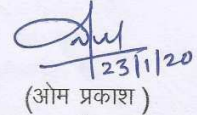 23|1|20
(ओम प्रकाश)